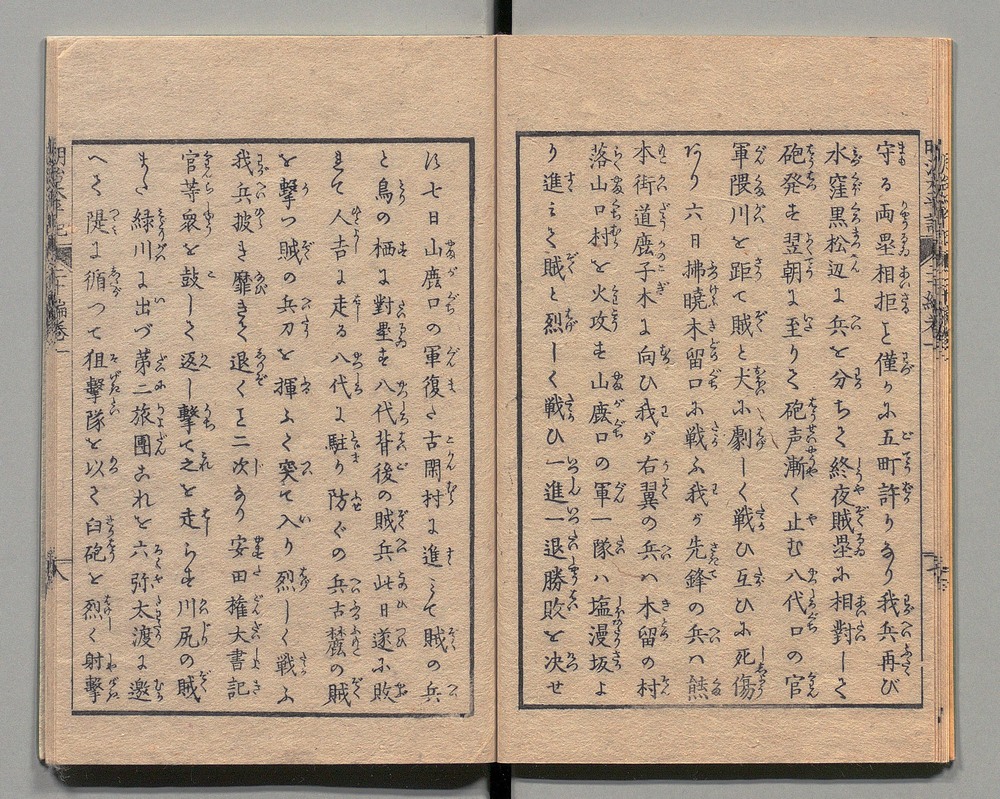 守る両塁相拒と僅りに五町許りあり我兵再び
水窪黒松辺に兵を分ちて終夜賊塁に相對して
砲発す翌朝に至りて砲声漸く止む八代口の官
軍隈川を距て賊と大に劇しく戦ひ互ひに死傷
あり六日拂暁木留口に戦ふ我が先鋒の兵ハ熊
本街道鹿子木に向ひ我が右翼の兵ハ木留の村
落山口村を火攻す山鹿口の軍一隊ハ塩漫坂よ
り進みて賊と烈しく戦ひ一進一退勝敗を决せ
ず七日山鹿口の軍復た古閑村に進みて賊の兵
と鳥の栖に對塁す八代背後の賊兵此日遂に敗
れて人吉に走る八代に駐り防ぐの兵古麓の賊
を撃つ賊の兵刀を揮ふて突て入り烈しく戦ふ
我兵披き靡きて退くこと二次あり安田権大書記
官等衆を鼓して返し撃て之を走らす川尻の賊
また緑川に出づ第二旅團これを六弥太渡に邀
へて隄に循つて狙撃隊を以て臼砲を烈く射撃